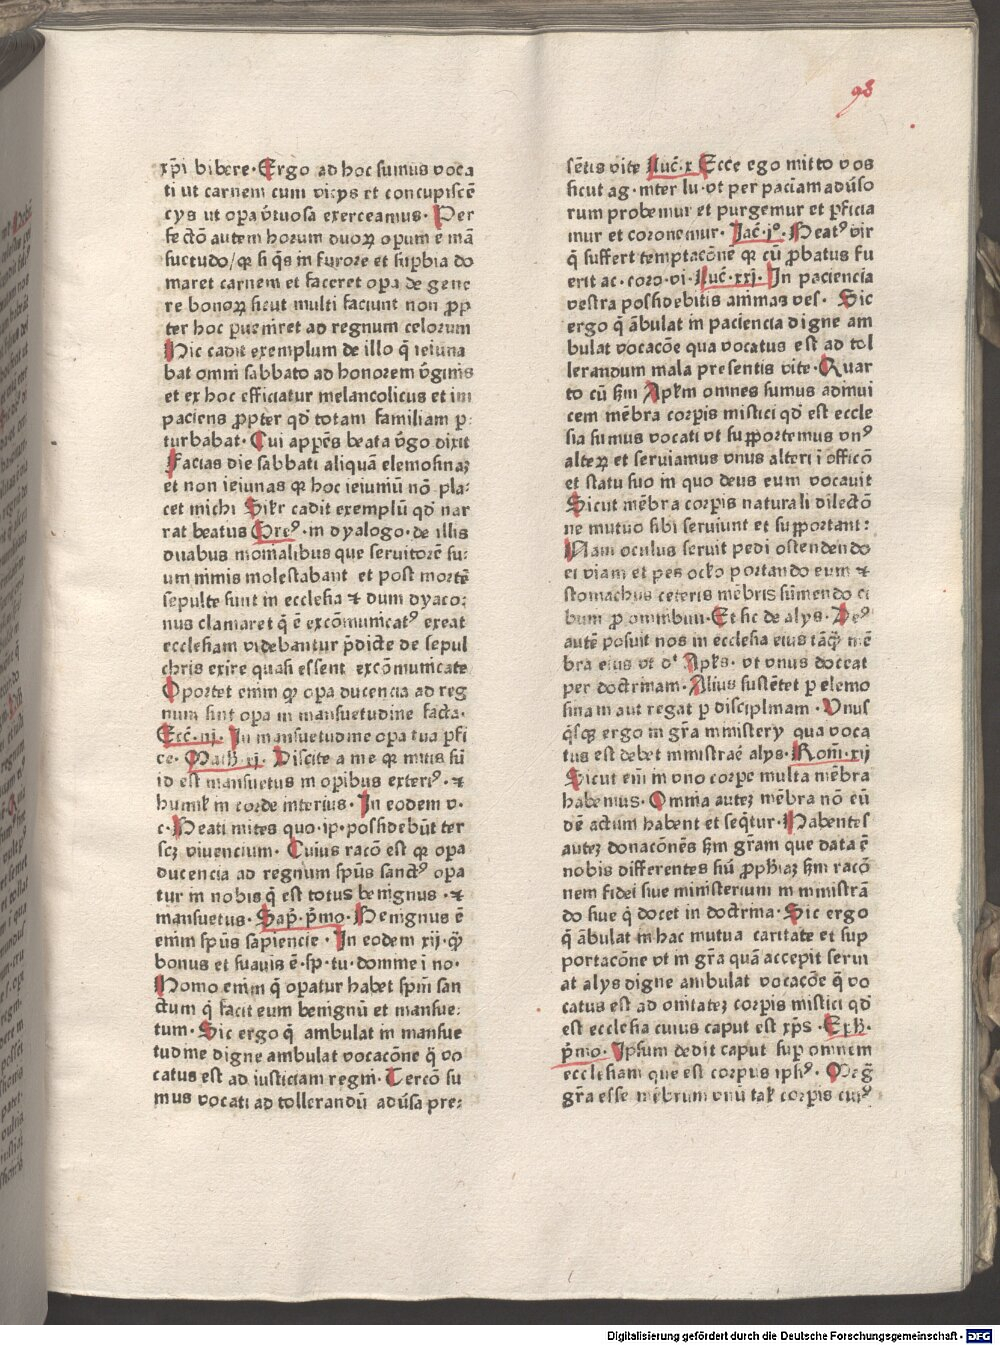 98
xp̄i bibere· Ergo ad hoc sumus voca
ti ut carnem cum vicys et concupiscē
cys ut oꝑa v̄tuosa exerceamus· Per
fectō autem horum duoꝝ opum ē mā
suetudo/ qꝛ si q̄s in furore et suꝑbia do
maret carnem et faceret oꝑa de gene
re bonoꝝ sicut multi faciunt non ꝓp
ter hoc ꝑueniret ad regnum celorum
Hic cadit exemplum de illo q̄ ieiuna
bat omni sabbato ad honorem v̄ginis
et ex hoc efficiatur melancolicus et im
paciens ꝓpter qd̄ totam familiam ꝑ
turbabat· Cui apꝑēs beata v̄go dixit
Facias die sabbati aliquā elemosinaꝫ
et non ieiunas qꝛ hoc ieiuniū nō pla⸗
cet michi Silr cadit exemplū qd̄ nar
rat beatus Greꝰ· in dyalogo· de illis
duabus monialibus que seruitorē su⸗
um nimis molestabant et post mortē
sepulte sunt in ecclesia ⁊ dum dyaco⸗
nus clamaret q̄ ē excōmunicatꝰ exeat
ecclesiam videbantur p̄dicte de sepul
chris exire quasi essent excōmunicate
Oportet enim qꝫ oꝑa ducencia ad reg
num sint oꝑa in mansuetudine facta·
Ecc̄· iij· In mansuetudine oꝑa tua ꝑfi
ce· Math̄ xi· Discite a me qꝛ mitis sū
id est mansuetus in oꝑibus exteriꝰ· ⁊
humiłł in corde interius· In eodem v·
c· Beati mites quo·ip·possidebūt ter
scꝫ viuencium· Cuius racō est qꝛ oꝑa
ducencia ad regnum spūs sanctꝰ oꝑa
tur in nobis q̄ est totus benignus· ⁊
mansuetus· Sap̄· p̄mo· Benignus ē
enim spūs sapiencie· In eodem xij· qꝫ̄
bonus et suauis ē·sp·tu·domine ī no·
Homo enim q̄ oꝑatur habet spm̄ san
ctum q̄ facit eum benignū et mansue⸗
tum· Sic ergo q̄ ambulat in mansue
tudine digne ambulat vocacōne q̄ vo
catus est ad iusticiam regni· Tercō su
mus vocati ad tollerandū adūsa pre⸗
sētis vite Luc̄· x Ecce ego mitto vos
sicut ag·inter lu·vt per paciam adūso
rum probemur et purgemur et ꝑficia
mur et coronemur· Jac̄·jº· Beatꝰ vir
q̄ suffert temptacōne qꝛ cū ꝓbatus fu
erit ac·coro·vi· Luc̄·xxj· In paciencia
vestra possidebitis animas ves· Sic
ergo q̄ ābulat in paciencia digne am
bulat vocacōe qua vocatus est ad tol
lerandum mala presentis vite· Quar
to cū ẜm Apłm omnes sumus adinui
cem mēbra corꝑis mistici qd̄ est eccle
sia sumus vocati vt supportemus vnꝰ
alteꝝ et seruiamus vnus alteri ī officō
et statu suo in quo deus eum vocauit
Sicut mēbra corꝑis naturali dilectō
ne mutuo sibi seruiunt et supportant⸗
Nam oculus seruit pedi ostendendo
ei viam et pes oclo portando eum ⁊
stomachus ceteris mēbris sumendo ci
bum ꝓ omnibus· Et sic de alys· Deꝰ
autē posuit nos in ecclesia eius tāqꝫ̄ mē
bra eius vt d⁊ Apłs· vt vnus doceat
per doctrinam· Alius sustētet ꝑ elemo
sinam aut regat ꝑ disciplinam· Vnus
q̄sqꝫ ergo in gr̄a ministery qua voca
tus est debet ministrar̄e alys· Rom̄·xij
Sicut eni in vno corꝑe multa mēbra
habemus· Omnia auteꝫ mēbra nō eū
dē actum habent et seq̄tur· Habentes
auteꝫ donacōnes ẜm gr̄am que data ē
nobis differentes siū ꝓph̄iaꝫ ẜm racō
nem fidei siue ministerium in ministrā
do siue q̄ docet in doctrina· Sic ergo
q̄ ābulat in hac mutua caritate et sup
portacōne vt in gr̄a quā accepit serui
at alys digne ambulat vocacōe q̄ vo
catus est ad vnitateꝫ corꝑis mistici qd̄
est ecclesia cuius caput est xp̄s· Eph̄·
p̄mo· Ipsum dedit caput suꝑ omnem
ecclesiam que est corpus ipsiꝰ· Maḡ
gr̄a esse mēbrum vnū talꝫ corꝑis cuiꝰ
Digitalisierung gefördert durch die Deutsche Forschungsgemeinschaft - DFG